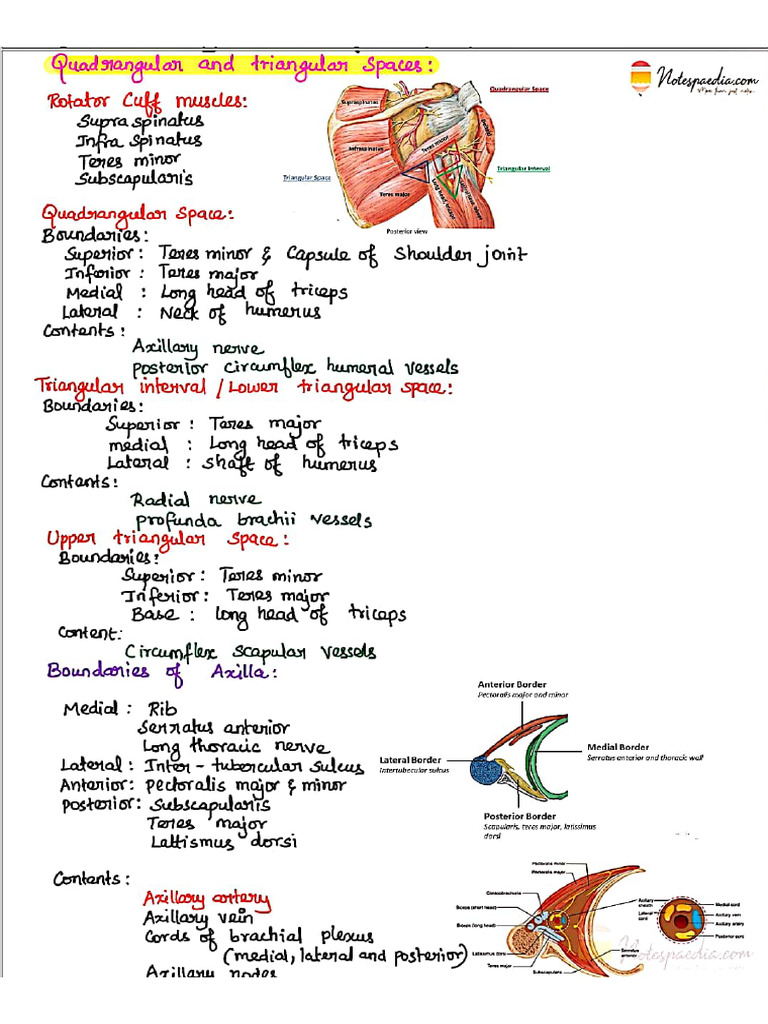 Quadrangular and triangular spaces:
Notespaedia.com
More than just notes..
Rotator Cuff muscles:
Supra spinatus
Infra spinatus
Teres minor
Subscapularis
Quadrangular Space
Supraspinatus
Infraspinatus
Teres minor
Deltoid
Triangular Space
Triangular Interval
Teres major
Posterior view
Quadrangular space:
Boundaries:
Superior: Teres minor & Capsule of shoulder joint
Inferior: Teres major
Medial : Long head of triceps
Lateral : Neck of humerus
Contents:
Axillary nerve
posterior circumflex humeral vessels
Triangular interval / Lower triangular space:
Boundaries:
Superior : Teres major
medial : Long head of triceps
Lateral : shaft of humerus
Contents:
Radial nerve
profunda brachii vessels
Upper triangular space:
Boundaries:
Superior: Teres minor
Inferior: Teres major
Base : long head of triceps
Content:
Circumflex scapular vessels
Boundaries of Axilla:
Medial : Rib
Serratus anterior
Long thoracic nerve
Lateral: Inter-tubercular sulcus
Anterior: pectoralis major & minor
posterior: Subscapularis
Teres major
Lattismus dorsi
Anterior Border
Pectoralis major and minor
Medial Border
Serratus anterior and thoracic wall
Lateral Border
Intertubecular sulcus
Posterior Border
Scapularis, teres major, latissimus
dorsi
Contents:
Axillary artery
Axillary vein
Cords of brachial plexus
(medial, lateral and posterior)
Axillary nodes
Pectoralis minor
Pectoralis major
Coracobrachialis
Biceps (short head)
Biceps (long head)
Latissimus dorsi
Teres major
Subscapularis
Serratus
anterior
Axillary
sheath
Lateral
cord
Medial cord
Axillary vein
Axillary artery
Posterior cord
Notespaedia.com